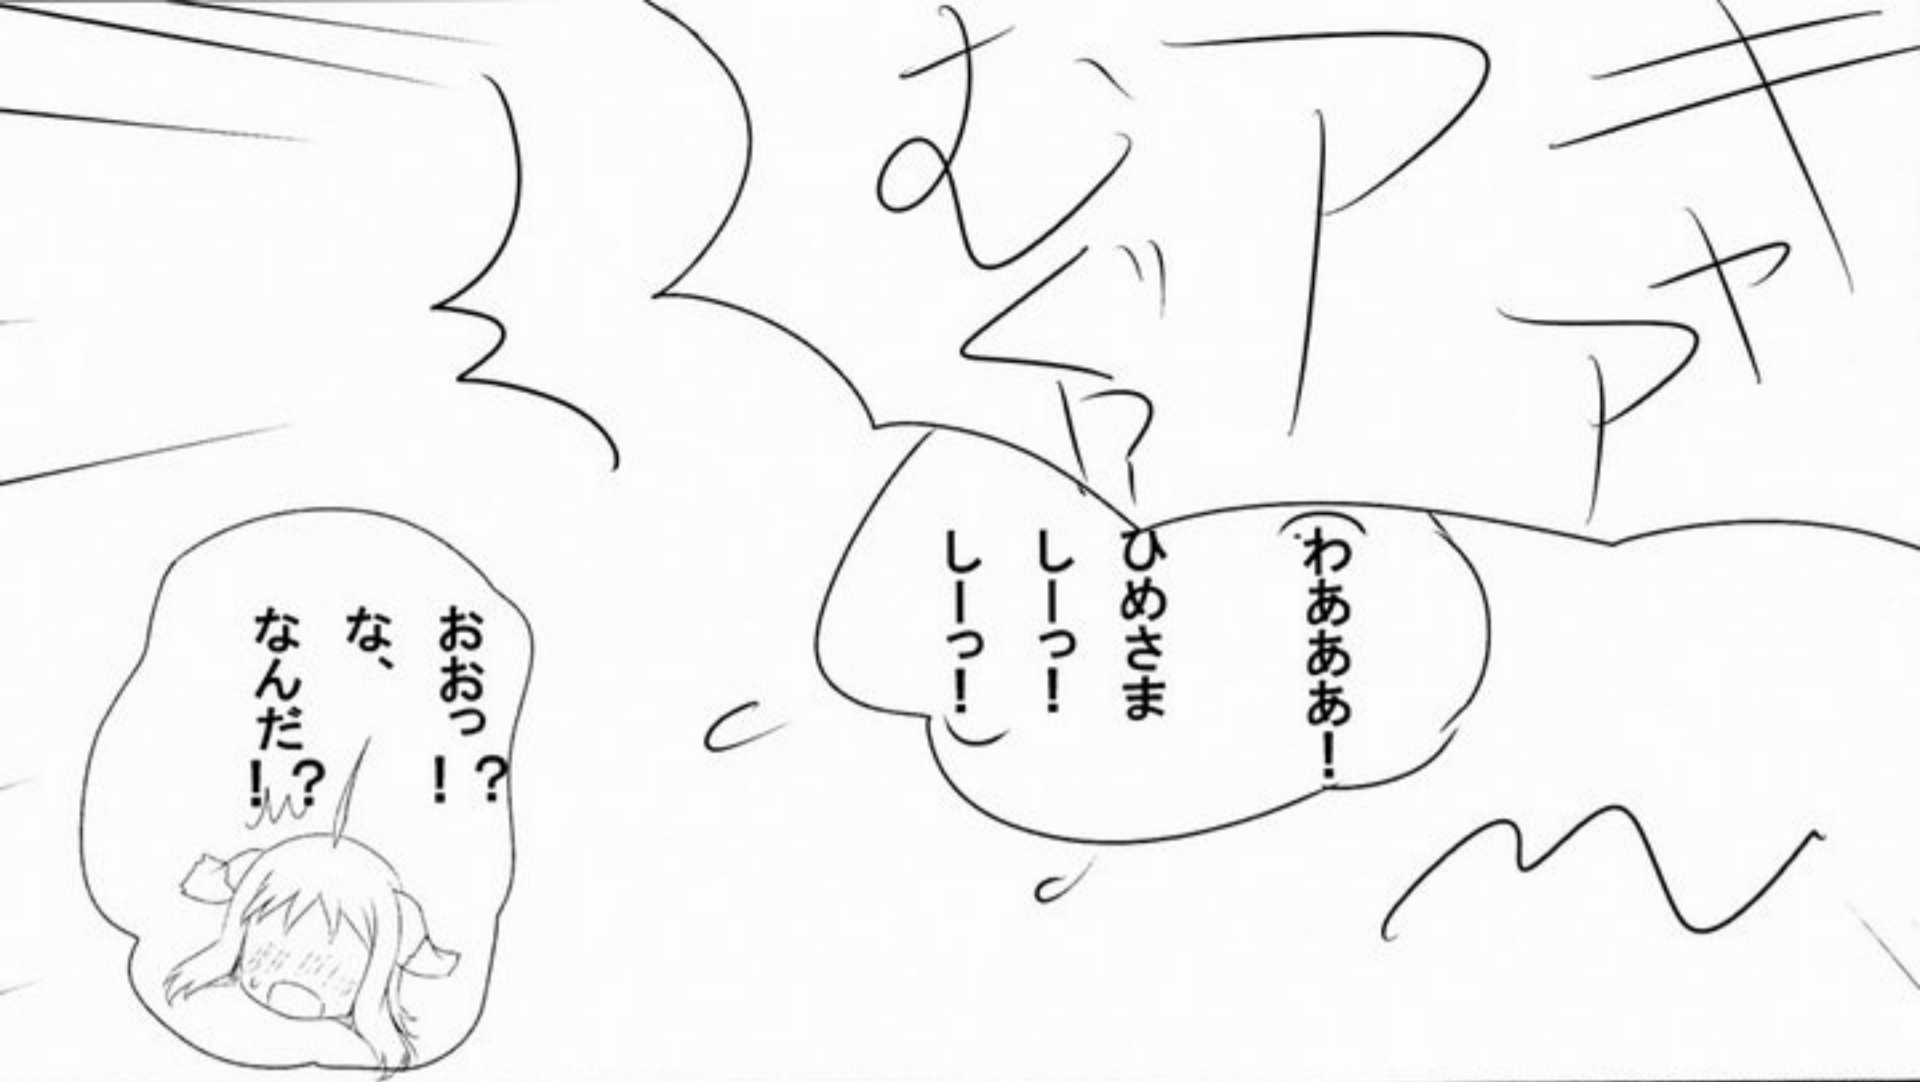 キャアア
むぐッ
わあああ!
ひめさま
しーっ!
しーっ!
おおっ!?
な、
なんだ!?